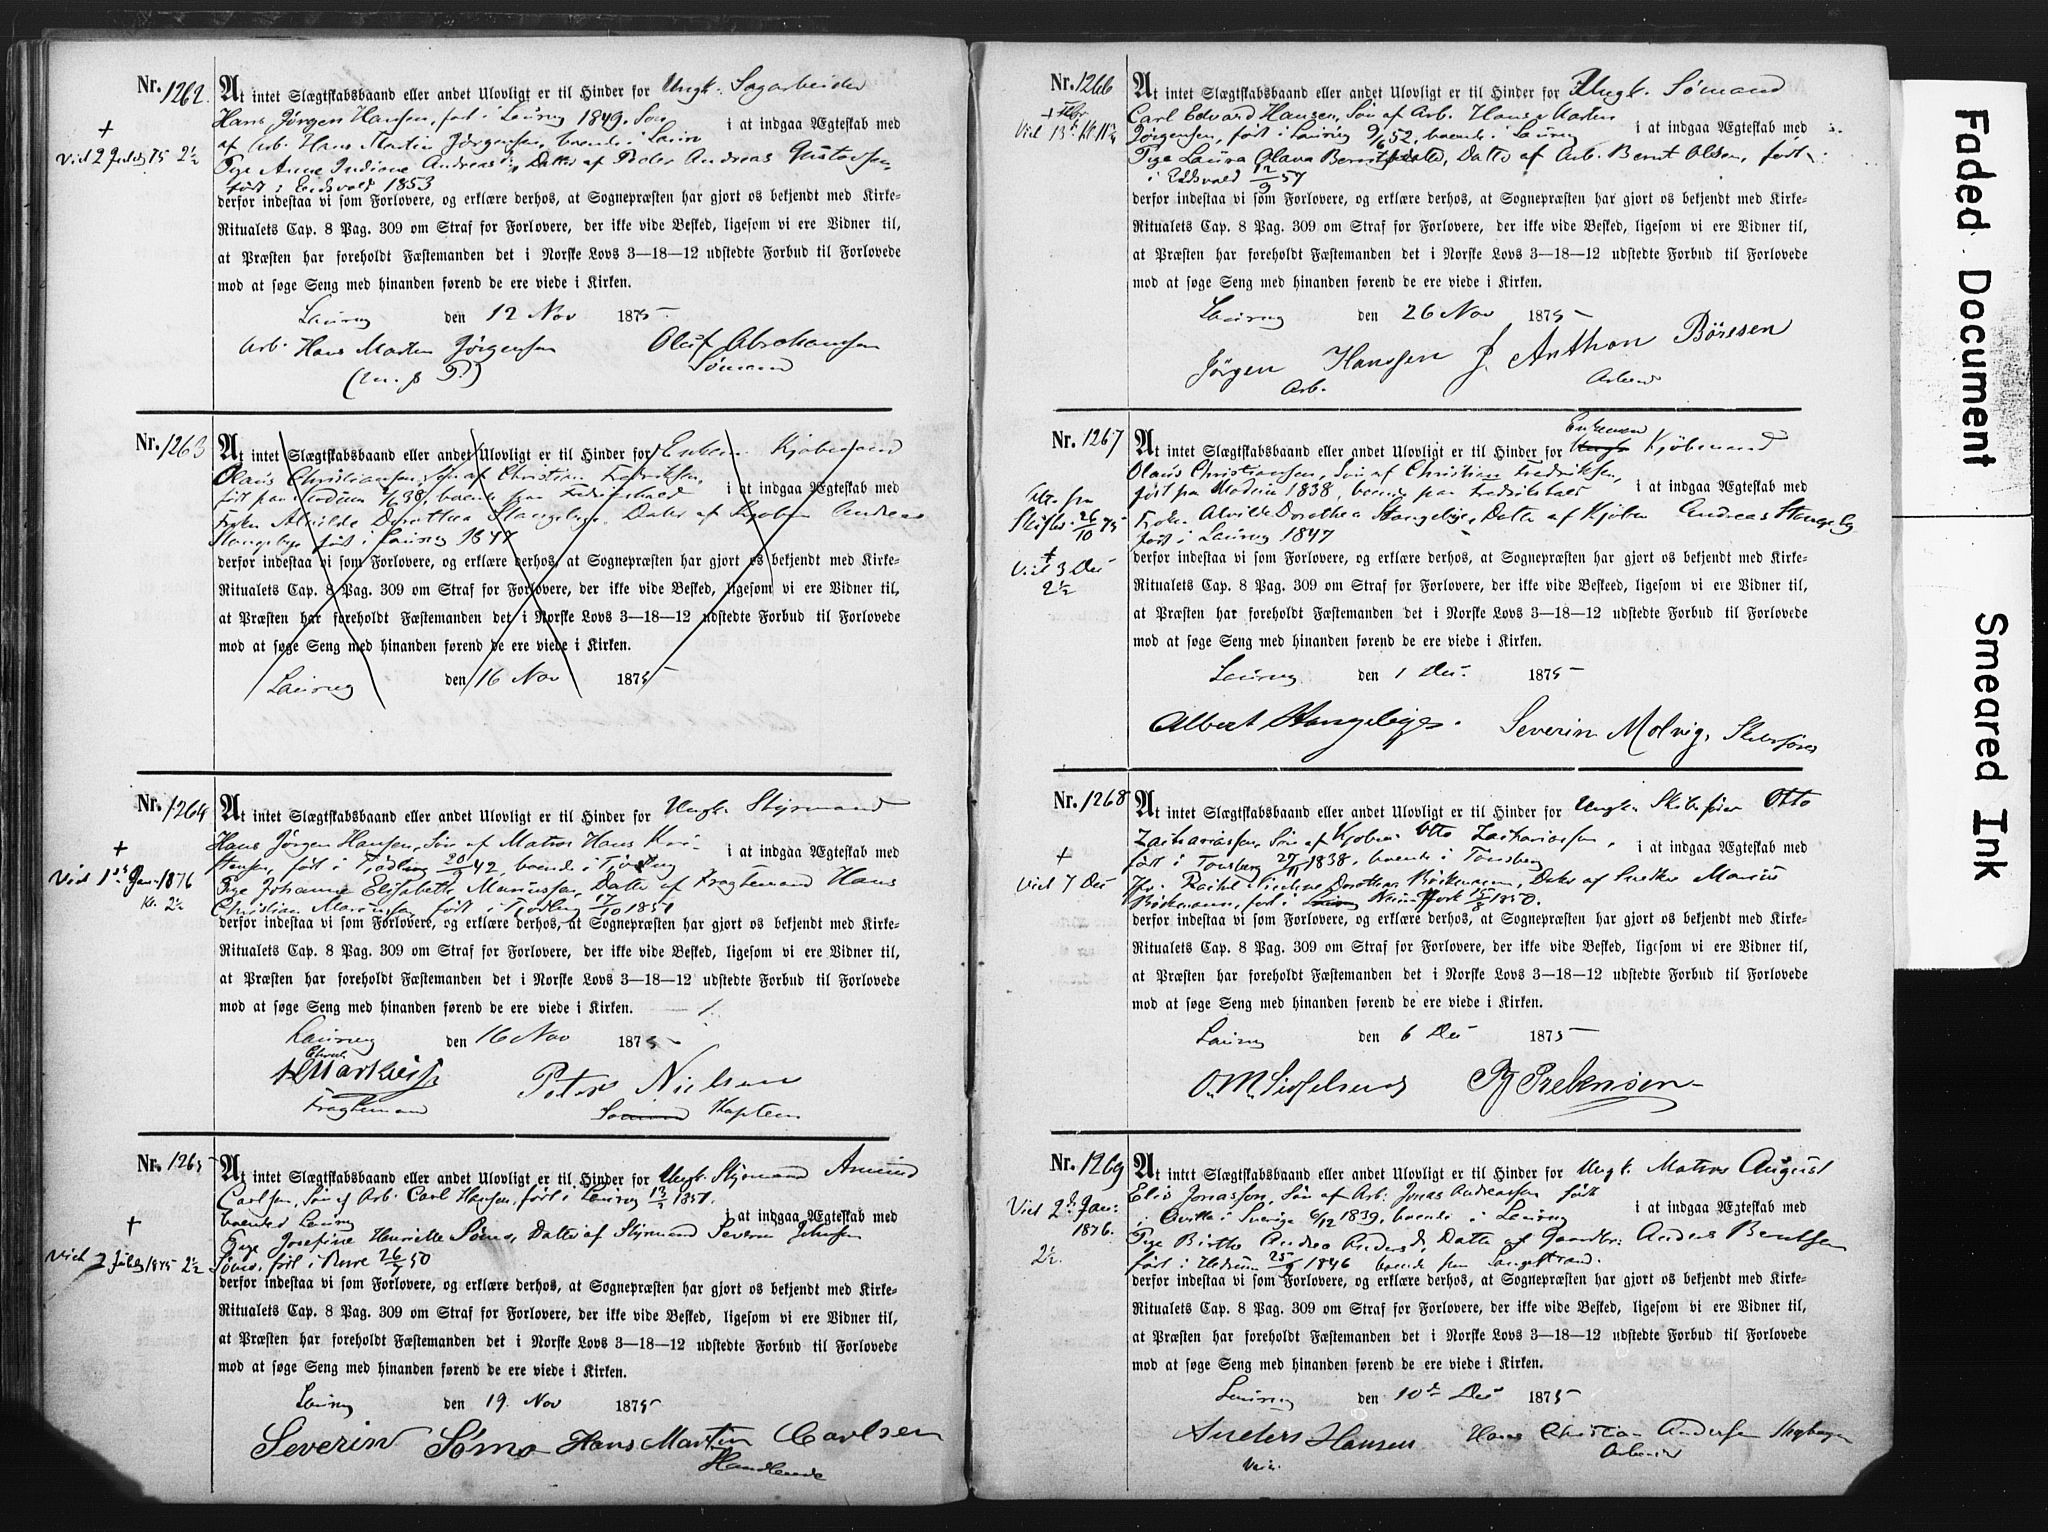 Nr. 1262.
At intet Slægtskabsbaand eller andet Ulovligt er til Hinder for Ungk. Sagarbeider
Hans Jørgen Hansen, født i Laurvig 1849, Søn
af Arb. Hans Martin Jørgensen, boende i Laurv i at indgaa Ægteskab med
Pige Anne Indiane Andreasd., Datter af Peder Andreas Gustavsen,
født i Eidsvold 1853
+
Viet 2 Juledg 75 2½
derfor indestaa vi som Forlovere, og erklære derhos, at Sognepræsten har gjort os bekjendt med Kirke-
Ritualets Cap. 8 Pag. 309 om Straf for Forlovere, der ikke vide Besked, ligesom vi ere Vidner til,
at Præsten har foreholdt Fæstemanden det i Norske Lovs 3—18—12 udstedte Forbud til Forlovede
mod at søge Seng med hinanden førend de ere viede i Kirken.
Laurvig den 12 Nov 1875
Arb. Hans Martin Jørgensen Oluf Abrahamsen
(m. p. P.) Sømand
Nr. 1263
At intet Slægtskabsbaand eller andet Ulovligt er til Hinder for Enkem. Kjøbmand
Olaus Christiansen, Søn af Christian Fredriksen,
født paa Modum 1838, boende paa Fredrikshald i at indgaa Ægteskab med
Frøken Alvilde Dorothea Stangebye, Datter af Kjøbm Andreas
Stangebye født i Laurvig 1847
derfor indestaa vi som Forlovere, og erklære derhos, at Sognepræsten har gjort os bekjendt med Kirke-
Ritualets Cap. 8 Pag. 309 om Straf for Forlovere, der ikke vide Besked, ligesom vi ere Vidner til,
at Præsten har foreholdt Fæstemanden det i Norske Lovs 3—18—12 udstedte Forbud til Forlovede
mod at søge Seng med hinanden førend de ere viede i Kirken.
Laurvig den 16 Nov 1875
Nr. 1264
At intet Slægtskabsbaand eller andet Ulovligt er til Hinder for Ungk. Styrmand
Hans Jørgen Hansen, Søn af Matros Hans Kri-
stensen, født i Tjødling 20/9 42, boende i Tjødling i at indgaa Ægteskab med
Pige Johanne Elisabeth Marcussen, Datter af Fragtemand Hans
Christian Marcussen, født i Tjødling 17/10 1851
+
Viet 1st Jan 1876
Kl. 2½
derfor indestaa vi som Forlovere, og erklære derhos, at Sognepræsten har gjort os bekjendt med Kirke-
Ritualets Cap. 8 Pag. 309 om Straf for Forlovere, der ikke vide Besked, ligesom vi ere Vidner til,
at Præsten har foreholdt Fæstemanden det i Norske Lovs 3—18—12 udstedte Forbud til Forlovede
mod at søge Seng med hinanden førend de ere viede i Kirken.
Laurvig den 16 Nov 1875
Peter Nielsen
Fragtemand Sømand Kaptein
Nr. 1265
At intet Slægtskabsbaand eller andet Ulovligt er til Hinder for Ungk. Styrmand Amund
Carlsen, Søn af Arb. Carl Hansen, født i Laurvig 13/2 1851.
boende i Laurvig i at indgaa Ægteskab med
Pige Josefine Henriette Sømo, Datter af Styrmand Severin Johnsen
Sømo, født i 26/7 50
+
Viet 2 Juledg 1875 2½
derfor indestaa vi som Forlovere, og erklære derhos, at Sognepræsten har gjort os bekjendt med Kirke-
Ritualets Cap. 8 Pag. 309 om Straf for Forlovere, der ikke vide Besked, ligesom vi ere Vidner til,
at Præsten har foreholdt Fæstemanden det i Norske Lovs 3—18—12 udstedte Forbud til Forlovede
mod at søge Seng med hinanden førend de ere viede i Kirken.
Laurvig den 19. Nov 1875
Severin Sømo Hans Martin Carlsen
Handlende
Nr. 1266
At intet Slægtskabsbaand eller andet Ulovligt er til Hinder for Ungk. Sømand
Carl Edvard Hansen, Søn af Arb. Hans Martin
Jørgensen, født i Laurvig 9/6 52, boende i Laurvig i at indgaa Ægteskab med
Pige Laura Olava Berntsdatter, Datter af Arb. Bernt Olsen, født
i Eidsvold 12/9 57
derfor indestaa vi som Forlovere, og erklære derhos, at Sognepræsten har gjort os bekjendt med Kirke-
Ritualets Cap. 8 Pag. 309 om Straf for Forlovere, der ikke vide Besked, ligesom vi ere Vidner til,
at Præsten har foreholdt Fæstemanden det i Norske Lovs 3—18—12 udstedte Forbud til Forlovede
mod at søge Seng med hinanden førend de ere viede i Kirken.
Laurvig den 26 Nov 1875
Jørgen Hanssen J. Anthon Böresen
Arb. Arbeid
Nr. 1267
Enkemand
At intet Slægtskabsbaand eller andet Ulovligt er til Hinder for Ungk. Kjøbmand
Olaus Christiansen, Søn af Christian Fredriksen,
født paa Modum 1838, boende paa Fredrikshald i at indgaa Ægteskab med
Frøken Alvilde Dorothea Stangebye, Datter af Kjøbm Andreas Stangeby
født i Laurvig 1847
fra
Skifter. 26/10 75
+
Viet 3 Dec
2½
derfor indestaa vi som Forlovere, og erklære derhos, at Sognepræsten har gjort os bekjendt med Kirke-
Ritualets Cap. 8 Pag. 309 om Straf for Forlovere, der ikke vide Besked, ligesom vi ere Vidner til,
at Præsten har foreholdt Fæstemanden det i Norske Lovs 3—18—12 udstedte Forbud til Forlovede
mod at søge Seng med hinanden førend de ere viede i Kirken.
Laurvig den 1 Dec. 1875
Albert Stangebye. Severin Molvig, Skibsfører
Nr. 1268
At intet Slægtskabsbaand eller andet Ulovligt er til Hinder for Ungk. Skibsfører Otto
Zachariassen, Søn af Kjøbm. Otto Zachariassen,
født i Tønsberg 27/11 1838, boende i Tønsberg i at indgaa Ægteskab med
Dorothea Böckmann, Datter af Snedker Marius
Böckmann, født i New York 15/8 1850.
+
Viet 7 Dec
derfor indestaa vi som Forlovere, og erklære derhos, at Sognepræsten har gjort os bekjendt med Kirke-
Ritualets Cap. 8 Pag. 309 om Straf for Forlovere, der ikke vide Besked, ligesom vi ere Vidner til,
at Præsten har foreholdt Fæstemanden det i Norske Lovs 3—18—12 udstedte Forbud til Forlovede
mod at søge Seng med hinanden førend de ere viede i Kirken.
Laurvig den 6 Dec 1875
Prebensen
Nr. 1269
At intet Slægtskabsbaand eller andet Ulovligt er til Hinder for Ungk. Matros August
Elis Jonasson, Søn af Arb. Jonas Andreassen født
i Sverige 6/12 1839, boende i Laurvig i at indgaa Ægteskab med
Pige Birthe Andrea Andersd, Datter af Gaardbr. Anders Berntsen
født i Hedrum 25/9 1846 boende paa Langestrand.
Viet 2d Jan:
1876.
2½.
derfor indestaa vi som Forlovere, og erklære derhos, at Sognepræsten har gjort os bekjendt med Kirke-
Ritualets Cap. 8 Pag. 309 om Straf for Forlovere, der ikke vide Besked, ligesom vi ere Vidner til,
at Præsten har foreholdt Fæstemanden det i Norske Lovs 3—18—12 udstedte Forbud til Forlovede
mod at søge Seng med hinanden førend de ere viede i Kirken.
Laurvig den 10de Dec 1875
Anders Hansen Hans Christian Andersen
Arbeider
Faded Document
Smeared Ink